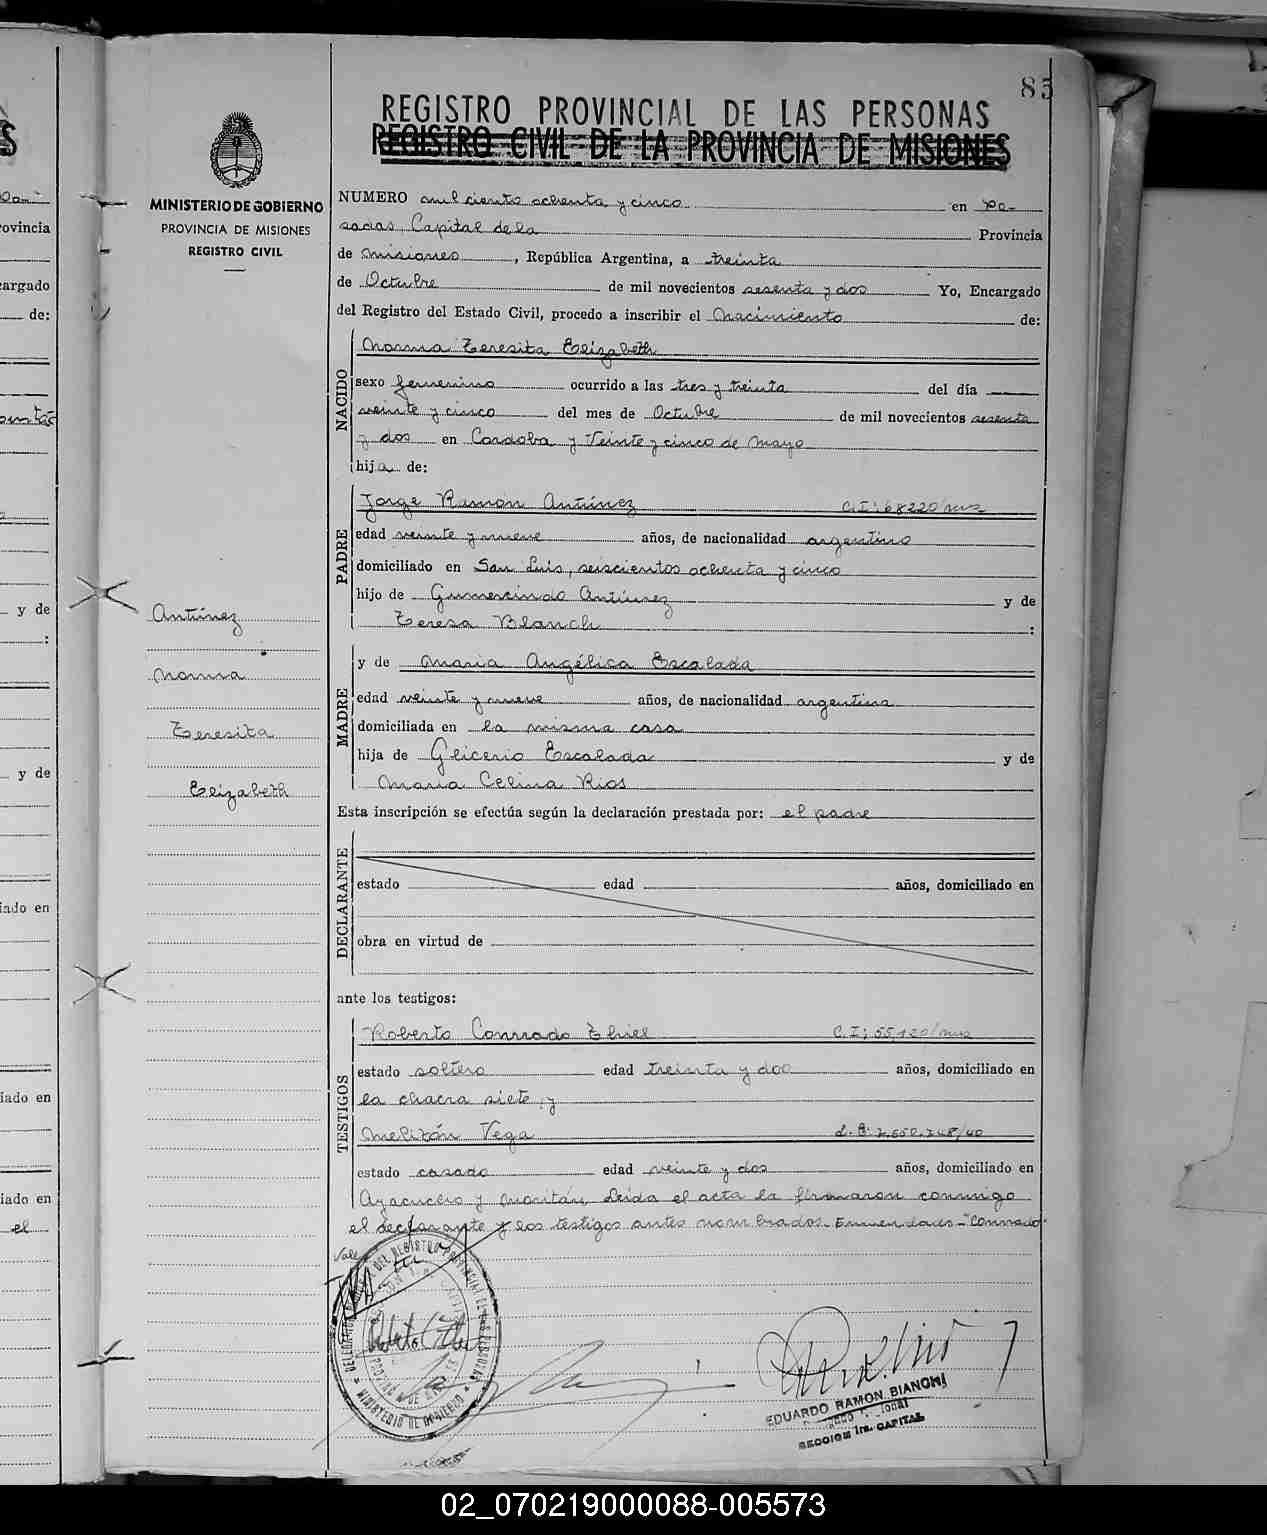 85
REGISTRO PROVINCIAL DE LAS PERSONAS
REGISTRO CIVIL DE LA PROVINCIA DE MISIONES
MINISTERIO DE GOBIERNO
PROVINCIA DE MISIONES
REGISTRO CIVIL
NUMERO mil ciento ochenta y cinco en Po-
sadas, Capital de la Provincia
de Misiones, República Argentina, a treinta
de Octubre de mil novecientos sesenta y dos Yo, Encargado
del Registro del Estado Civil, procedo a inscribir el Nacimiento de:
NACIDO
Norma Teresita Elizabeth
sexo femenino ocurrido a las tres y treinta del día
veinte y cinco del mes de Octubre de mil novecientos sesenta
y dos en Cordoba y Veinte y cinco de Mayo
hija de:
PADRE
Jorge Ramón Antúnez C.I: 68220/mns
edad veinte y nueve años, de nacionalidad argentino
domiciliado en San Luis, seiscientos ochenta y cinco
hijo de Gumercindo Antúnez y de
Teresa Blanch :
MADRE
y de María Angélica Escalada
edad veinte y nueve años, de nacionalidad argentina
domiciliada en la misma casa
hija de Glicerio Escalada y de
María Celina Rios
Antúnez
Norma
Teresita
Elizabeth
Esta inscripción se efectúa según la declaración prestada por: el padre
DECLARANTE
estado edad años, domiciliado en
obra en virtud de
ante los testigos:
TESTIGOS
Roberto Conrrado Thiel C.I: 55,120/mns
estado soltero edad treinta y dos años, domiciliado en
la chacra siete, y
Melitón Vega
estado casado edad veinte y dos años, domiciliado en
Ayacucho y Leida el acta la firmaron conmigo
el declarante y los testigos antes nombrados. Enmendados-"Conrrado"
Vale
DEL REGISTRO PROVINCIAL DE LAS PERSONAS
MINISTERIO DE GOBIERNO
EDUARDO RAMON BIANCHI
SECCION 1ra. CAPITAL
02_070219000088-005573